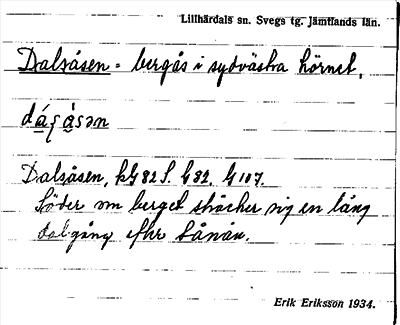 Lillhärdals sn. Svegs tg. Jämtlands län.
Dalsåsen = bergås i sydvästra hörnet.
Dalsåsen, kG 82 S. G 32. G 107.
Söder om berget sträcker sig en lång
dalgång efter Lånån.
Erik Eriksson 1934.